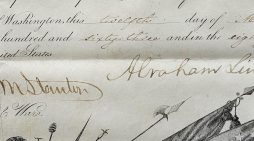 Washington, this twelfth day of M
hundred and sixty three and in the eig
United States
Abraham Lin
M Stanton
War.